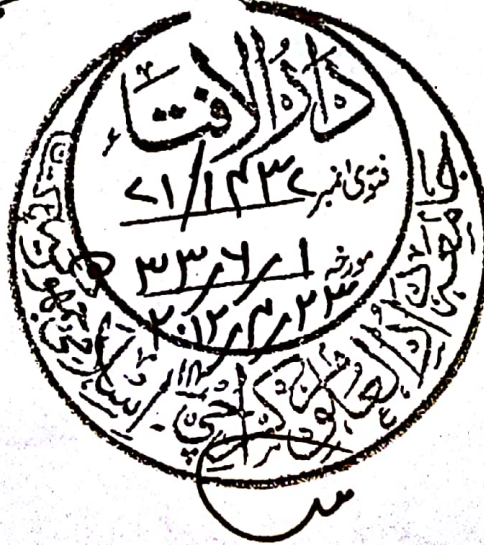 دارالافتاء
فتوی نمبر ۷۱/۱۴۳۲
مورخہ ۱/۶/۳۳
۲۰۱۲/۴/۲۳
جامعہ دارالعلوم کراچی ۱۴ اسلامی جمہوریہ پاکستان